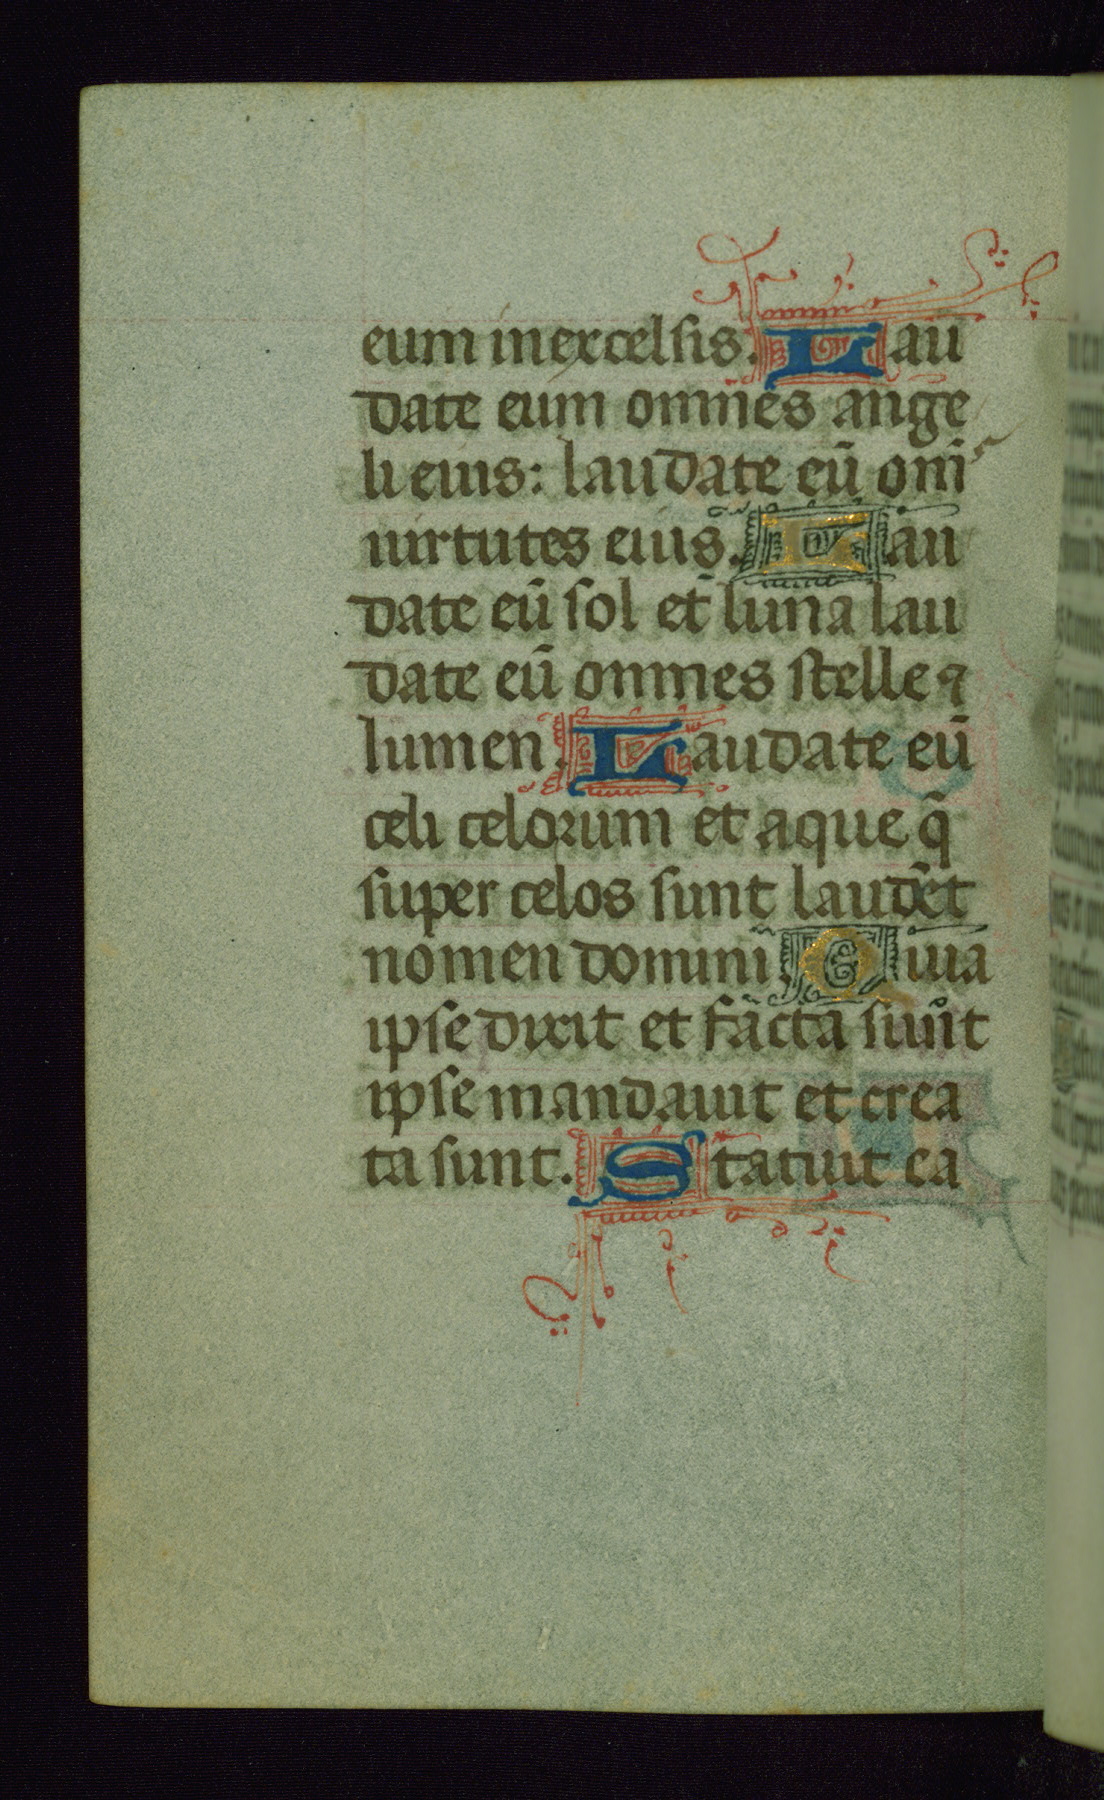 eum in excelsis. Lau
date eum omnes ange
li eius: laudate eū om̄s
uirtutes eius. Lau
date eū sol et luna lau
date eū omnes stelle ⁊
lumen. Laudate eū
celi celorum et aque q̄
super celos sunt laudēt
nomen domini Quia
ipse dixit et facta sunt
ipse mandauit et crea
ta sunt. Statuit ea